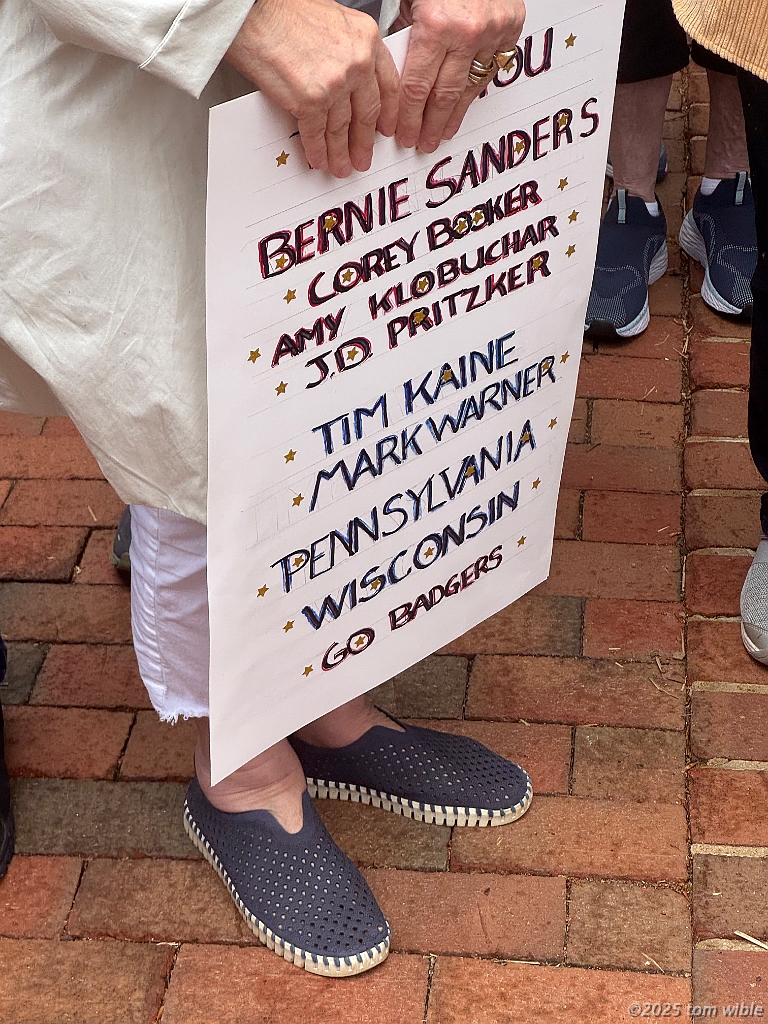 YOU
BERNIE SANDERS
COREY BOOKER
AMY KLOBUCHAR
J.D. PRITZKER
TIM KAINE
MARK WARNER
PENNSYLVANIA
WISCONSIN
GO BADGERS
©2025 tom wible